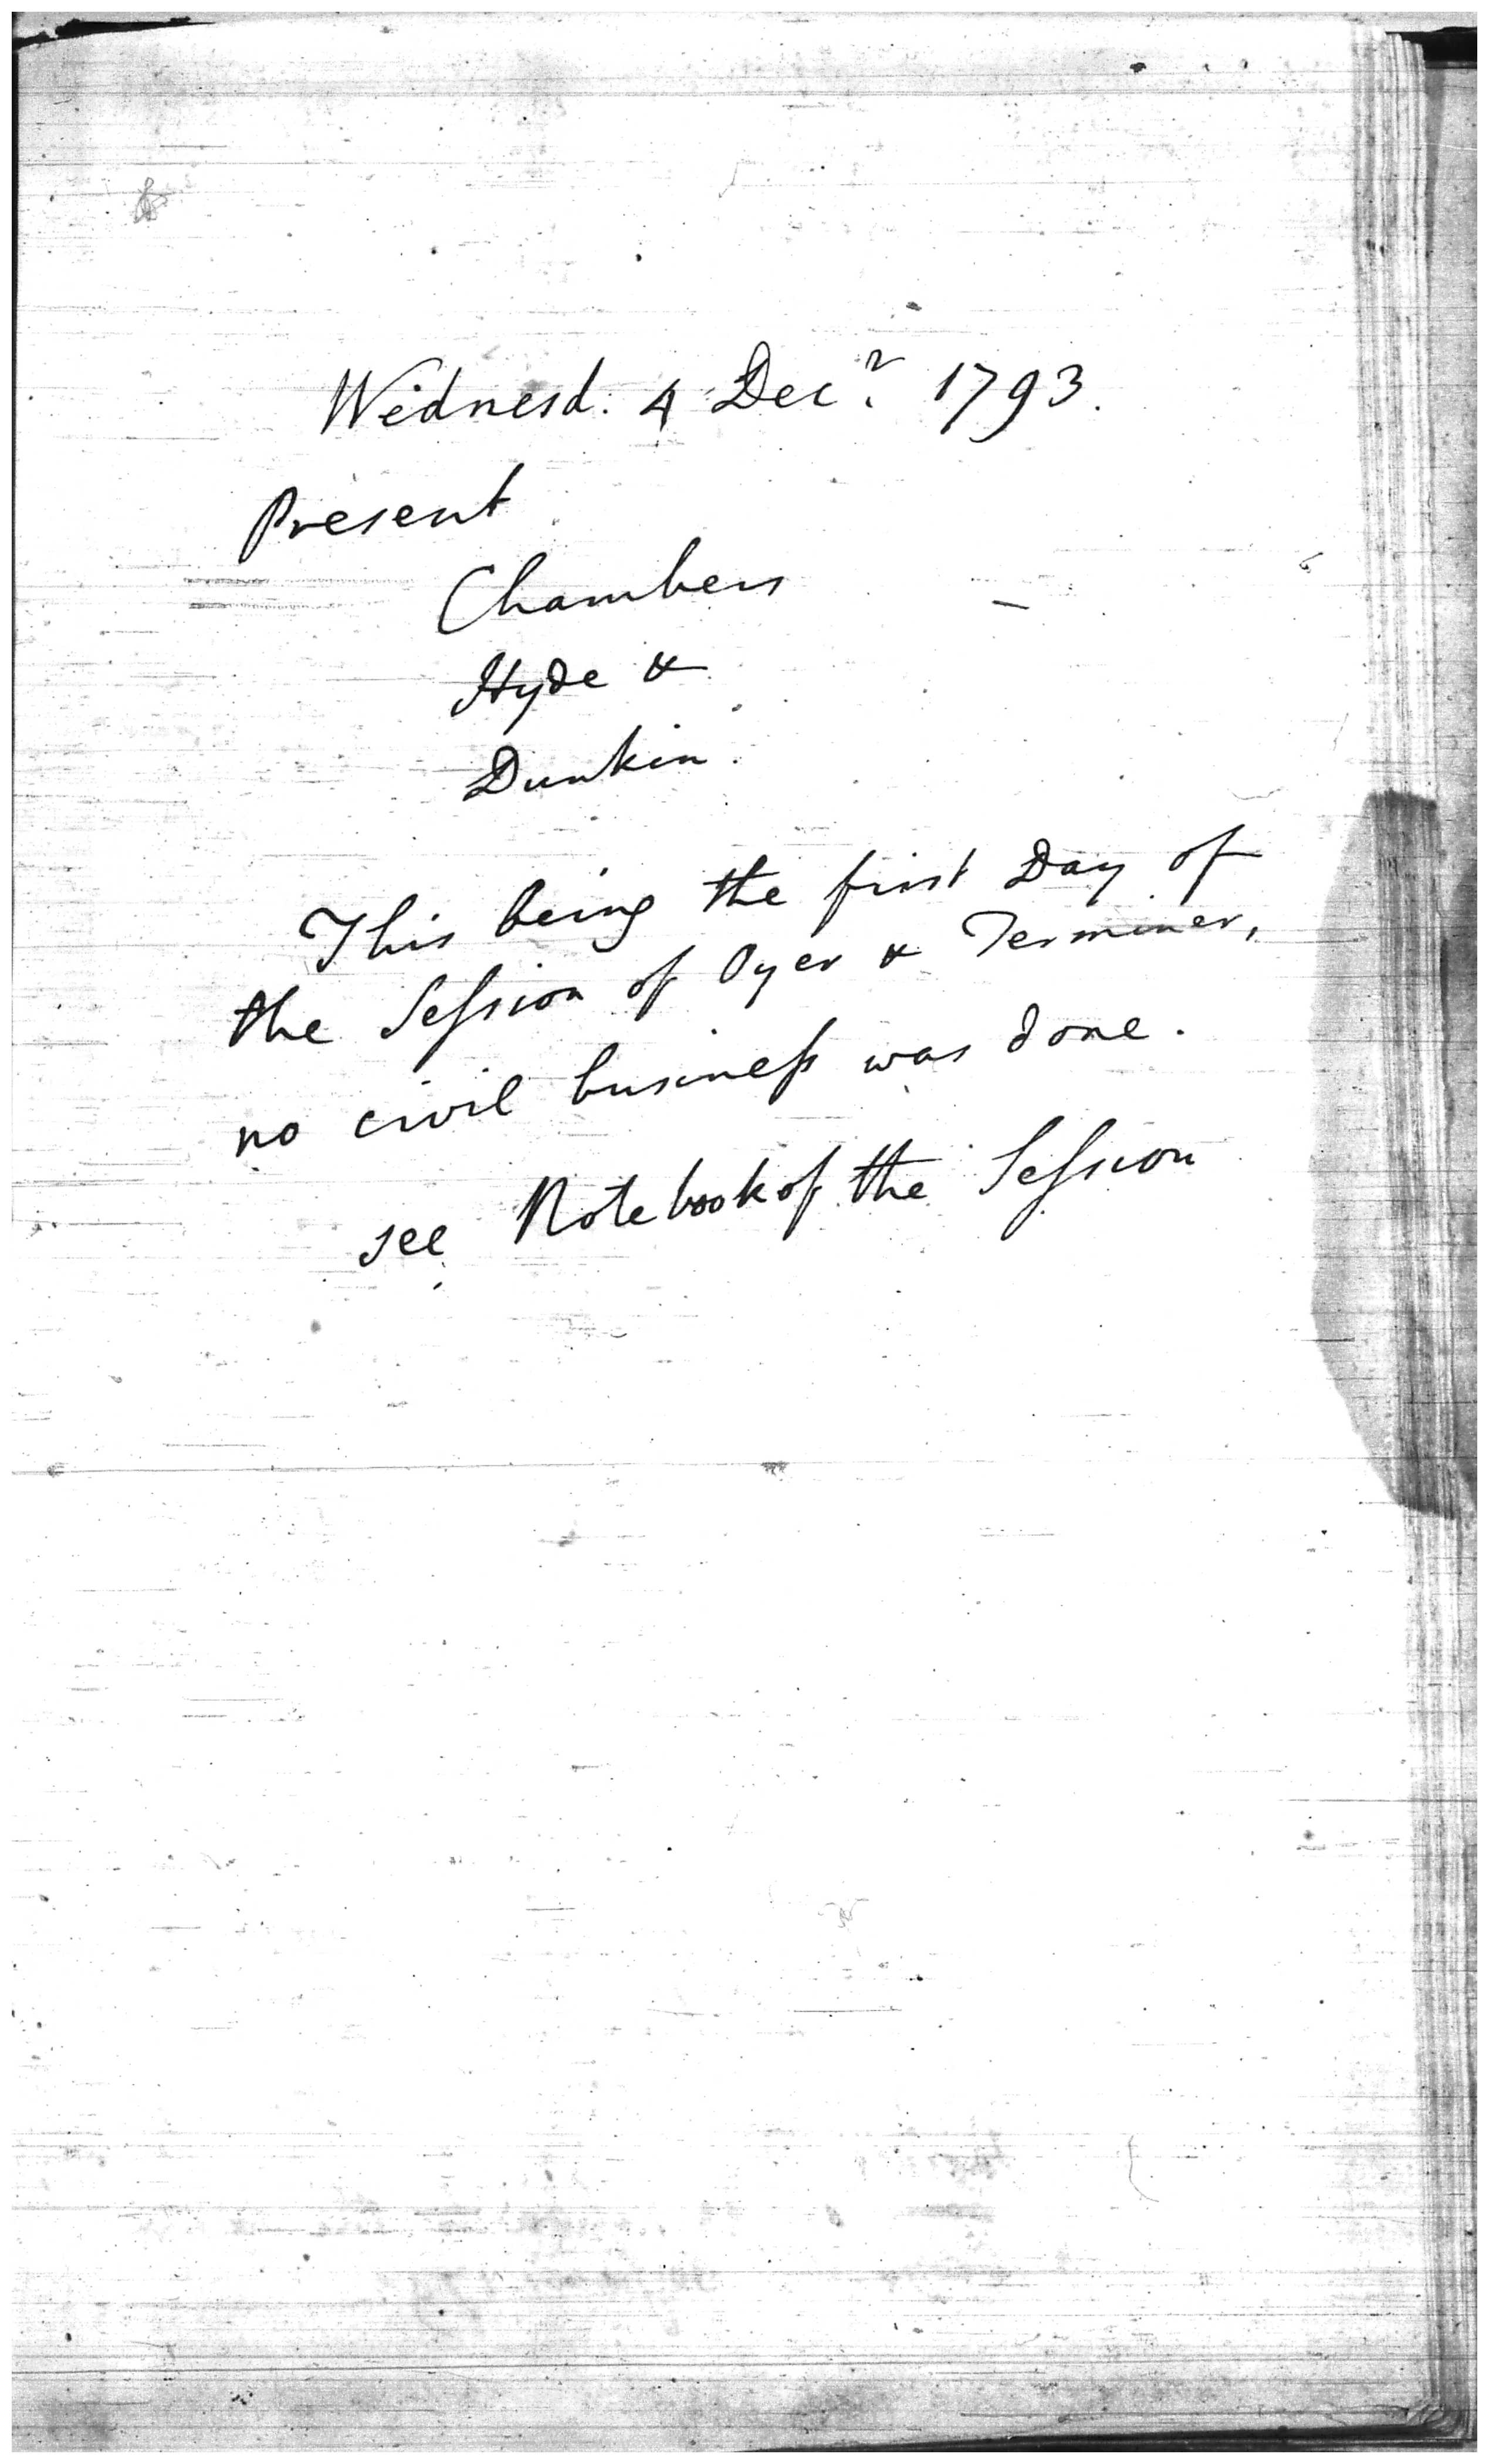 Wednesd. 4 Decr. 1793.
Present
Chambers
Hyde &
Dunkin.
This being the first Day of
the Session of Oyer & Terminer,
no civil business was done.
see Notebook of the Session